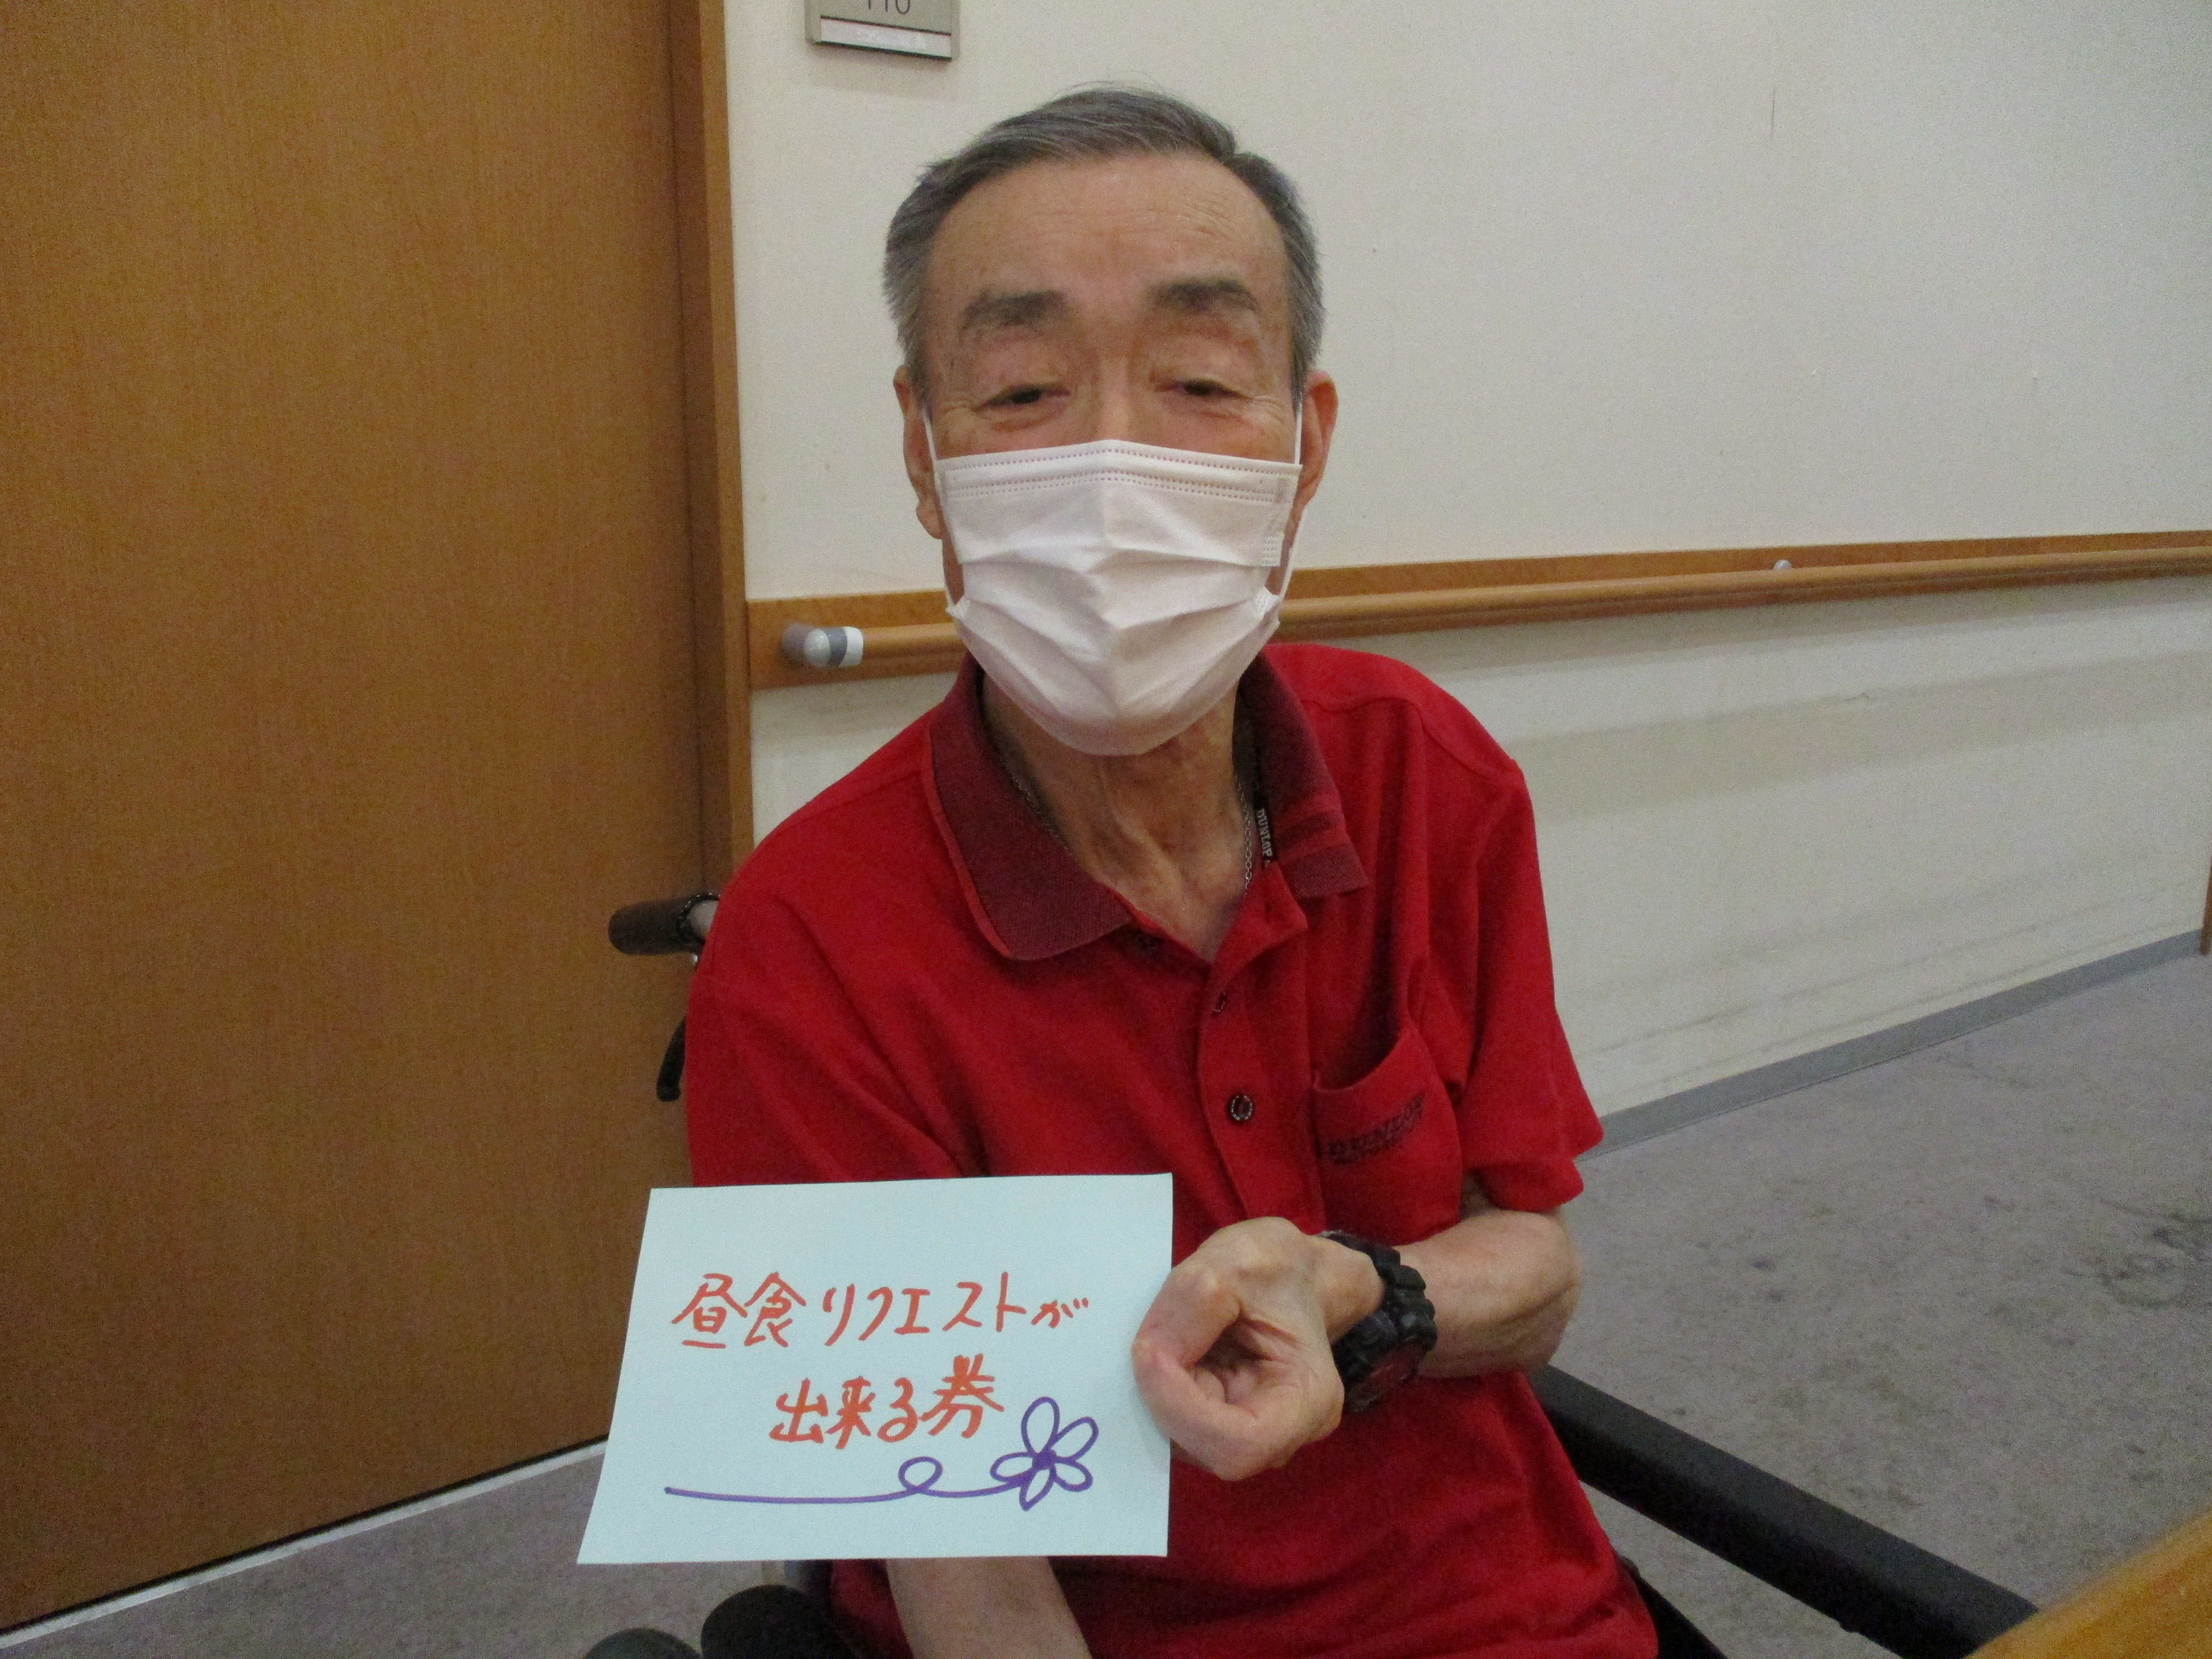 110
DUNLOP
昼食リクエストが
出来る券